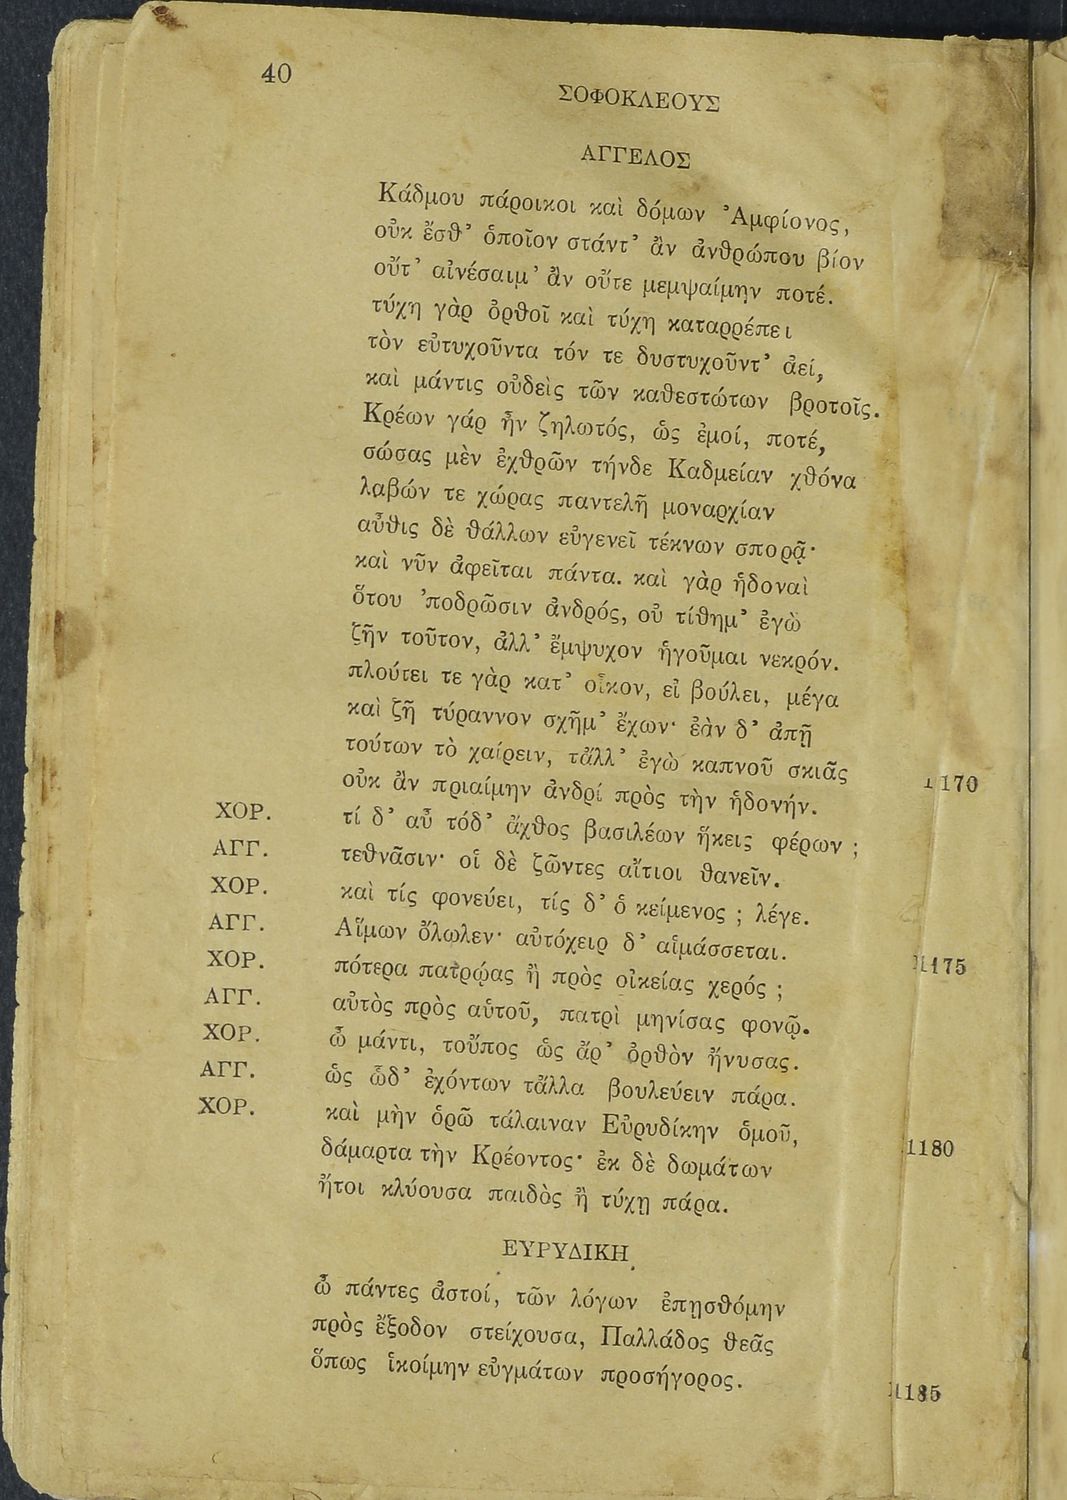 40
ΣΟΦΟΚΛΕΟΥΣ
ΑΓΓΕΛΟΣ
Κάδμου πάροικοι καὶ δόμων Ἀμφίονος,
οὐκ ἔσθ᾽ ὁποῖον στάντ᾽ ἂν ἀνθρώπου βίον
οὔτ᾽ αἰνέσαιμ᾽ ἂν οὔτε μεμψαίμην ποτέ.
τύχη γὰρ ὀρθοῖ καὶ τύχη καταρρέπει
τὸν εὐτυχοῦντα τόν τε δυστυχοῦντ᾽ ἀεί,
καὶ μάντις οὐδεὶς τῶν καθεστώτων βροτοῖς.
Κρέων γάρ ἦν ζηλωτός, ὡς ἐμοί, ποτέ,
σώσας μὲν ἐχθρῶν τήνδε Καδμείαν χθόνα
λαβών τε χώρας παντελῆ μοναρχίαν
αὖθις δὲ θάλλων εὐγενεῖ τέκνων σπορᾷ·
καὶ νῦν ἀφεῖται πάντα. καὶ γὰρ ἡδοναὶ
ὅτου ᾽ποδρῶσιν ἀνδρός, οὐ τίθημ᾽ ἐγὼ
ζῆν τοῦτον, ἀλλ᾽ ἔμψυχον ἡγοῦμαι νεκρόν.
πλούτει τε γὰρ κατ᾽ οἶκον, εἰ βούλει, μέγα
καὶ ζῆ τύραννον σχῆμ᾽ ἔχων· ἐὰν δ᾽ ἀπῇ
τούτων τὸ χαίρειν, τἄλλ᾽ ἐγὼ καπνοῦ σκιᾶς 1170
οὐκ ἂν πριαίμην ἀνδρί πρὸς τὴν ἡδονήν.
ΧΟΡ. τί δ᾽ αὖ τόδ᾽ ἄχθος βασιλέων ἥκεις φέρων ;
ΑΓΓ. τεθνᾶσιν· οἱ δὲ ζῶντες αἴτιοι θανεῖν.
ΧΟΡ. καὶ τίς φονεύει, τίς δ᾽ ὁ κείμενος ; λέγε.
ΑΓΓ. Αἵμων ὄλωλεν· αὐτόχειρ δ᾽ αἱμάσσεται. 1175
ΧΟΡ. πότερα πατρῴας ἢ πρὸς οἰκείας χερός ;
ΑΓΓ. αὐτὸς πρὸς αὑτοῦ, πατρὶ μηνίσας φονῷ.
ΧΟΡ. ὦ μάντι, τοὔπος ὡς ἄρ᾽ ὀρθὸν ἤνυσας.
ΑΓΓ. ὡς ὧδ᾽ ἐχόντων τἄλλα βουλεύειν πάρα.
ΧΟΡ. καὶ μὴν ὁρῶ τάλαιναν Εὐρυδίκην ὁμοῦ, 1180
δάμαρτα τὴν Κρέοντος· ἐκ δὲ δωμάτων
ἤτοι κλύουσα παιδὸς ἢ τύχῃ πάρα.
ΕΥΡΥΔΙΚΗ
ὦ πάντες ἀστοί, τῶν λόγων ἐπῃσθόμην
πρὸς ἔξοδον στείχουσα, Παλλάδος θεᾶς
ὅπως ἱκοίμην εὐγμάτων προσήγορος. 1185